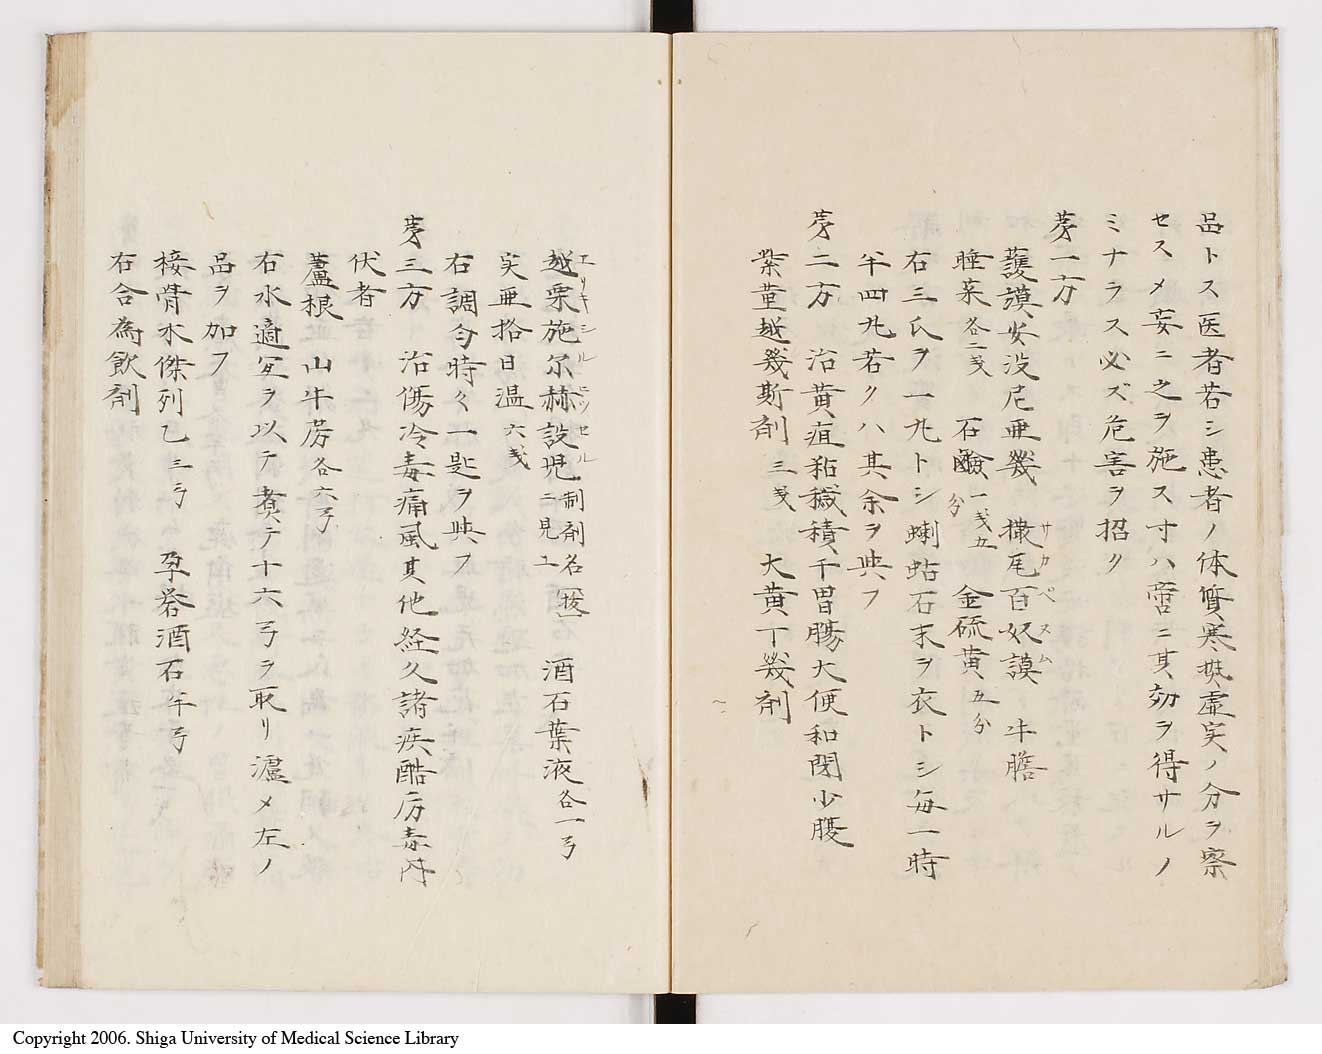 品トス医者若シ患者ノ体質寒熱虚実ノ分ヲ察
セスメ妄ニ之ヲ施ス寸ハ啻ニ其効ヲ得サルノ
ミナラス必ズ危害ヲ招ク
㐧一方
護謨安没尼亜幾 撒尾百奴謨 サカペヌム 牛膽
睡菜各二戔 石鹸一戔五分 金硫黄五分
右三氏ヲ一丸トシ蝲蛄石末ヲ衣トシ毎一時
半四丸若クハ其余ヲ與フ
㐧二方 治黄疸粘穢積于胃腸大便和閉少腹
菫越幾斯剤 三戔 大黄丁幾剤
越栗施尔赫設児 エリキシルヒツセル 制剤名二見ユ 酒石葉液各一弓
実亜拾日温六戔
右調匀時々一匙ヲ與フ
㐧三方 治傷冷毒痛風其他経久諸疾酷厉毒内
伏者
蘆根 山牛蒡各六弓
右水適宜ヲ以テ煮テ十六弓ヲ取リ濾メ左ノ
品ヲ加フ
接骨木傑列乙三弓 孕礬酒石半弓
右合為飲剤
Copyright 2006. Shiga University of Medical Science Library